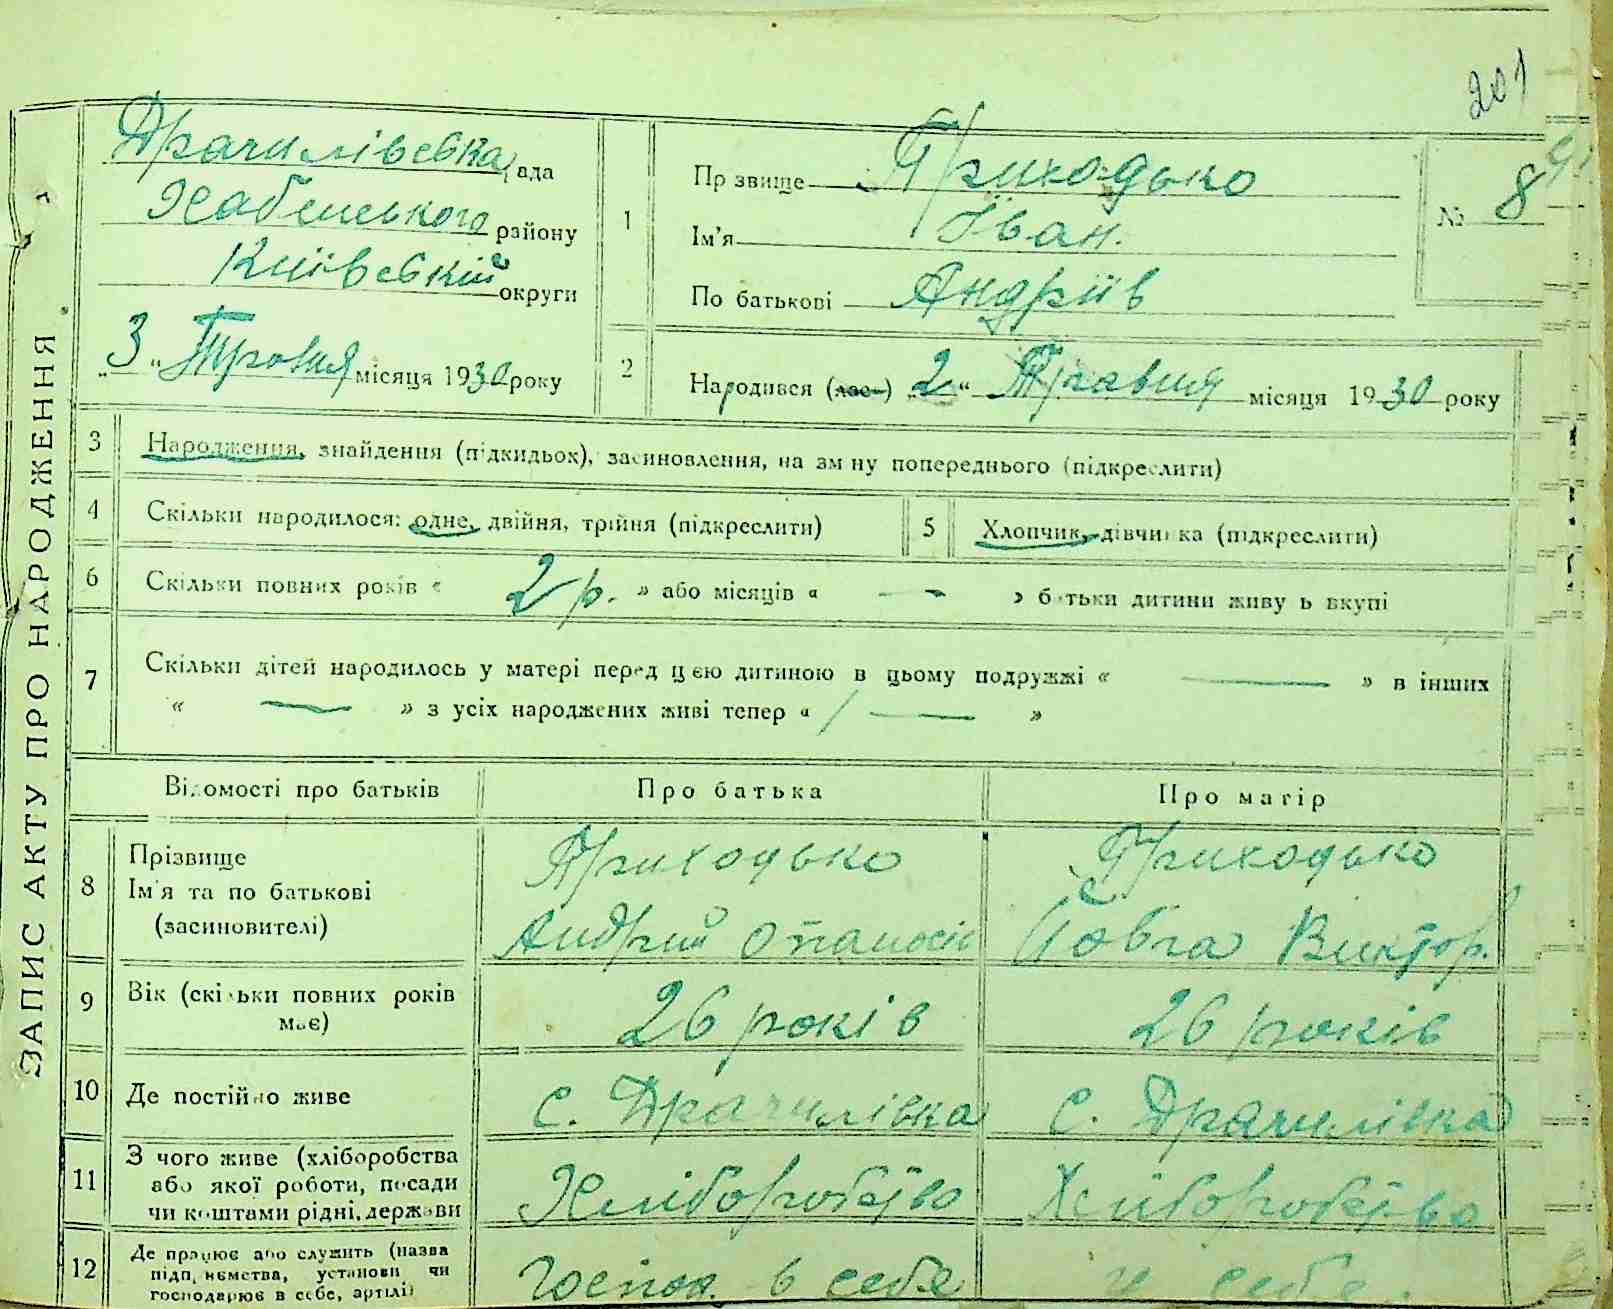 201
ЗАПИС АКТУ ПРО НАРОДЖЕННЯ
Драчилівська рада
Хабенського району
Київській округи
„3“ Травня місяця 1930 року
1
Прізвище Приходько
Ім'я Іван.
По батькові Андріїв
№ 8
2
Народився (лась) „2“ Травня місяця 1930 року
3 Народження, знайдення (підкидьок), засиновлення, на зміну попереднього (підкреслити)
4 Скільки народилося: одне, двійня, трійня (підкреслити)
5 Хлопчик, дівчинка (підкреслити)
6 Скільки повних років « 2 р. » або місяців « — » батьки дитини живуть вкупі
7 Скільки дітей народилось у матері перед цією дитиною в цьому подружжі « — » в інших
« — » з усіх народжених живі тепер « — »
Відомості про батьків Про батька Про матір
8 Прізвище
Ім'я та по батькові
(засиновителі)
Приходько
Андрій Опанасів
Приходько
Йовга Виктор.
9 Вік (скільки повних років
має)
26 років 26 років
10 Де постійно живе с. Драчилівка с. Драчилівка
11 З чого живе (хліборобства
або якої роботи, посади
чи коштами рідні, держави
Хліборобство Хліборобство
12 Де працює або служить (назва
підприємства, установи чи
господарює в себе, артілі)
Господ. в себе у себе.